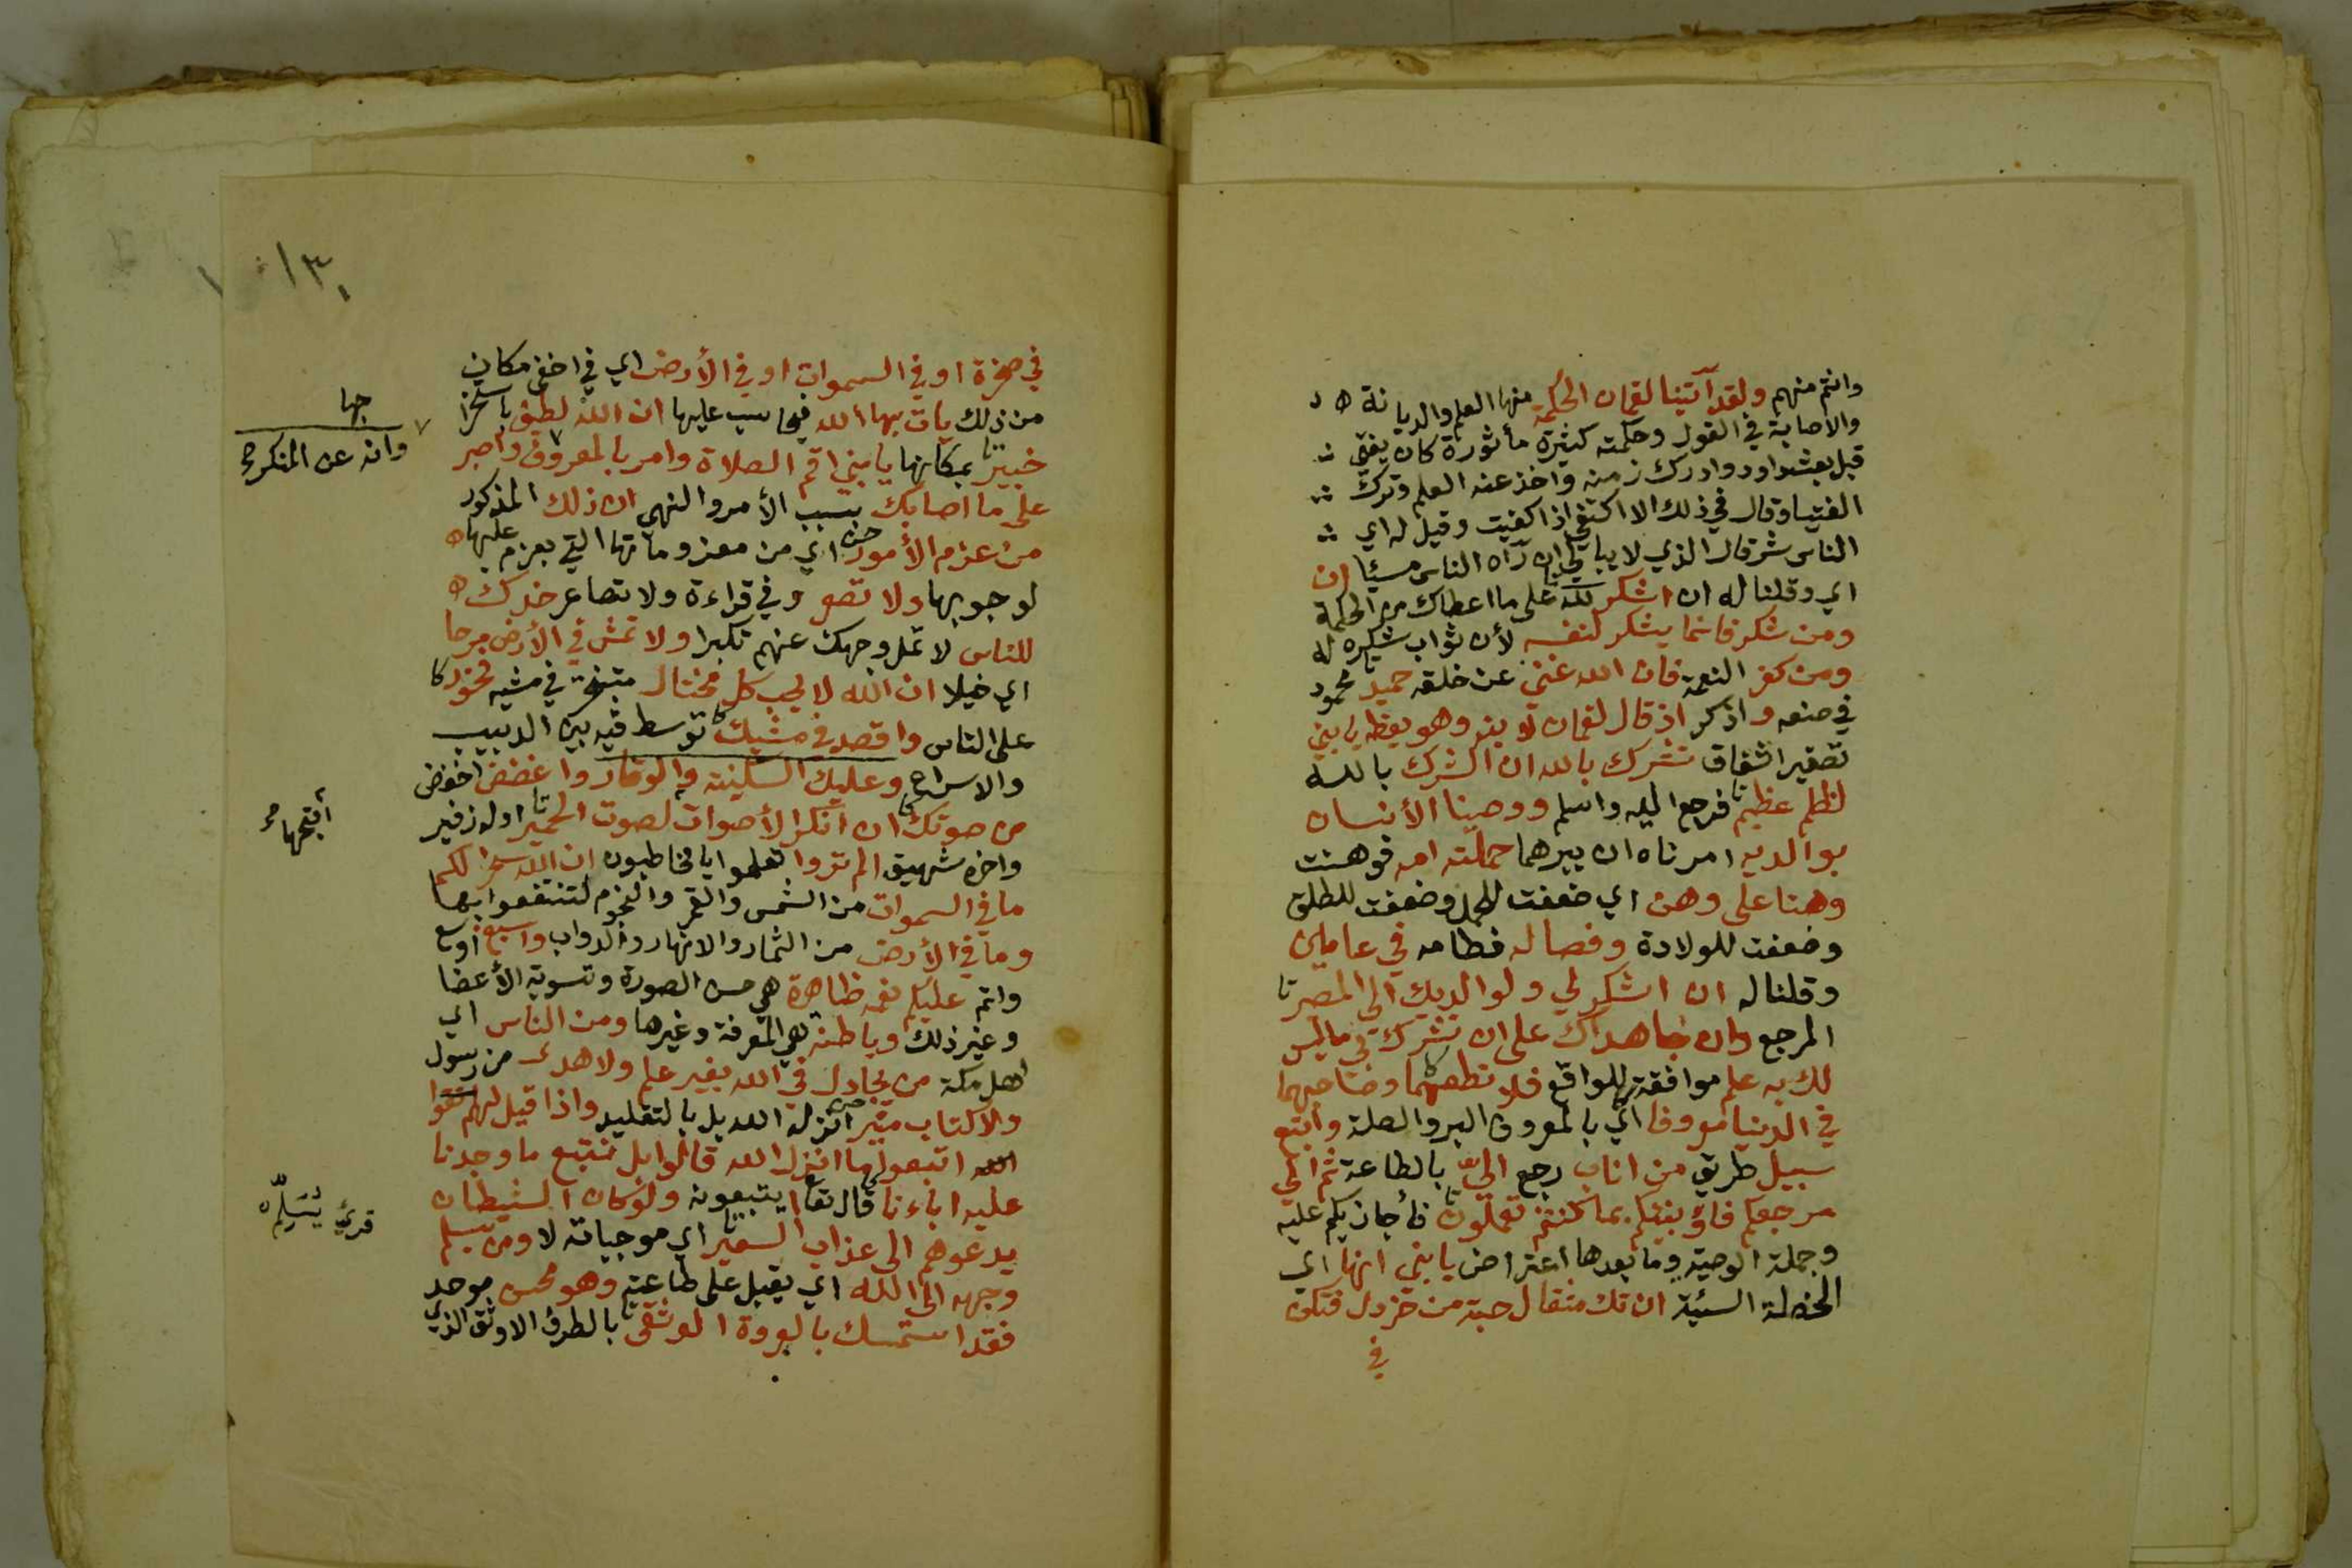 وانتم منهم ولقد آتينا لقمان الحكمة منها العلم والديانة
والاصابة في القول وحكمته كثيرة مأثورة كان يفتي
قبل بعثة داود وادرك زمنه واخذ عنه العلم وترك
الفتيا وقال في ذلك الا اكتفي اذا كفيت وقيل له اي
الناس شر قال الذي لا يبالي ان رآه الناس مسيئا ان
اي وقلنا له ان اشكر لله على ما اعطاك من الحكمة
ومن شكر فانما يشكر لنفسه لأن ثواب شكره له
ومن كفر النعمة فان الله غني عن خلقه حميد محمود
في صنعه واذكر اذ قال لقمان لابنه وهو يعظه يابني
تصغير اشفاق تشرك بالله ان الشرك بالله
لظلم عظيم فرجع اليه واسلم ووصينا الأنسان
بوالديه امرناه ان يبرهما حملته امه فوهنت
وهنا على وهن اي ضعفت للحمل وضعفت للطلق
وضعفت للولادة وفصاله فطامه في عامين
وقلنا له ان اشكر لي ولوالديك الي المصير
المرجع وان جاهداك على ان تشرك بي ماليس
لك به علم موافقة للواقع فلا تطعهما وصاحبهما
في الدنيا معروفا اي بالمعروف البر والصلة واتبع
سبيل طريق من اناب رجع الي بالطاعة ثم الي
مرجعكم فاؤنبئكم بما كنتم تعملون فأجازيكم عليه
وجملة الوصية وما بعدها اعتراض يابني انها اي
الخصلة السيئة ان تك مثقال حبة من خردل فتكن
في
١٣٠
في صخرة او في السموات او في الأرض اي في اخفى مكان
من ذلك يات بها الله فيحاسب عليها ان الله لطيف باستخرا
جها
خبير بمكانها يابني اقم الصلاة وامر بالمعروف واصبر
وانه عن المنكر صح
على ما اصابك بسبب الأمر والنهي ان ذلك المذكور
من عزم الأمور اي من معزوماتها التي يعزم عليها
لوجوبها ولا تصعر وفي قراءة ولا تصاعر خدك
للناس لا تمل وجهك عنهم تكبرا ولا تمش في الأرض مرحا
اي خيلا ان الله لا يحب كل مختال متبختر في مشيه فخور
على الناس واقصد في مشيك توسط فيه بين الدبيب
والاسراع وعليك السكينة والوقار واغضض اخفض
من صوتك ان انكر الأصوات لصوت الحمير اوله زفير
أقبحها
واخره شهيق الم تروا تعلموا يا مخاطبون ان الله سخر لكم
ما في السموات من الشمس والقمر والنجوم لتنتفعوا بها
وما في الأرض من الثمار والانهار والدواب واسبغ اوسع
واتم عليكم نعمه ظاهرة هي حسن الصورة وتسوية الأعضا
وغير ذلك وباطنة هي المعرفة وغيرها ومن الناس اي
اهل مكة من يجادل في الله بغير علم ولا هدى من رسول
ولا كتاب منير انزله الله بل بالتقليد واذا قيل لهم
اتبعوا ما انزل الله قالوا بل نتبع ما وجدنا
عليه اباءنا قال تعا ايتبعونه ولو كان الشيطان
يدعوهم الى عذاب السعير اي موجباته لا ومن يسلم
قرئ يُسَلِّم
وجهه الى الله اي يقبل على طاعته وهو محسن موحد
فقد استمسك بالعروة الوثقى بالطرف الاوثق الذي